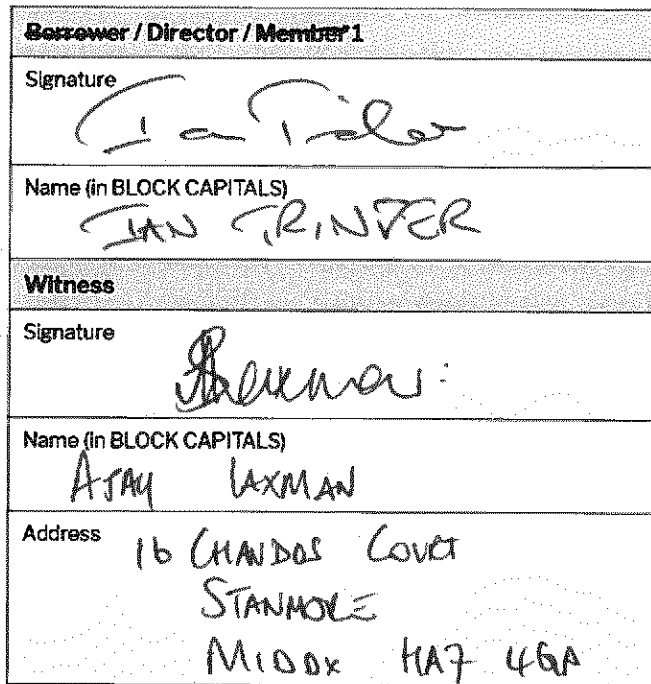 Borrower / Director / Member 1
Signature
Ian Trinder
Name (in BLOCK CAPITALS)
IAN TRINDER
Witness
Signature
Name (in BLOCK CAPITALS)
AJAY LAXMAN
Address 16 CHANDOS COURT
STANMORE
MIDDX HA7 4GA